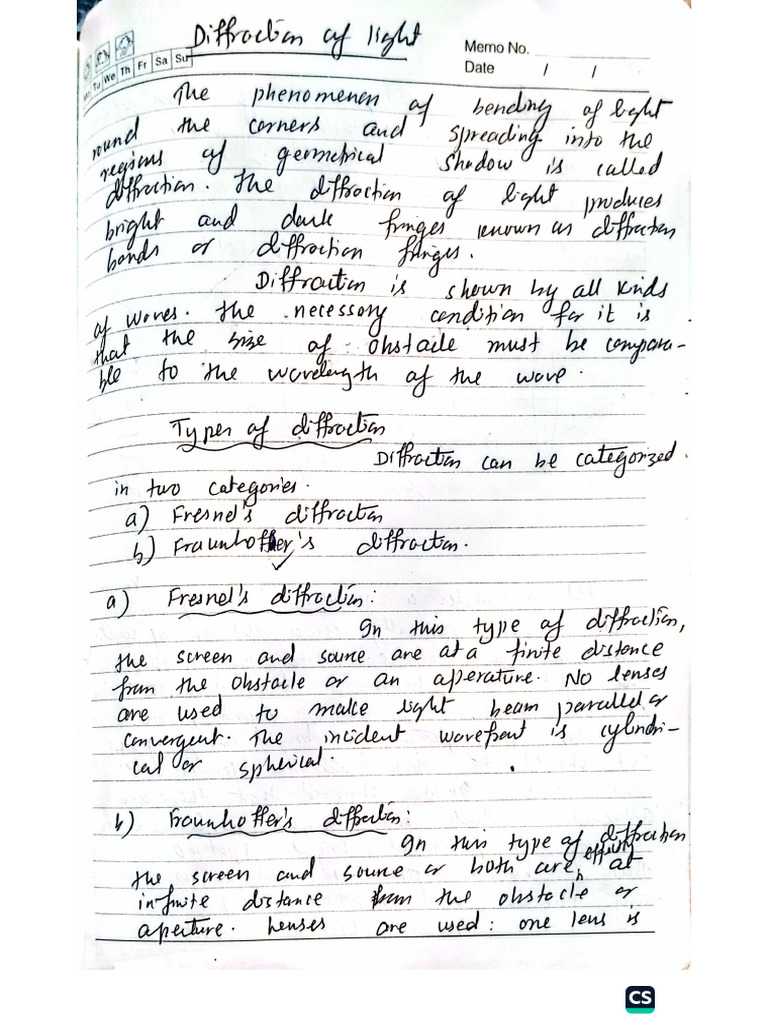 Diffraction of light
Memo No.
Date / /
Mo Tu We Th Fr Sa Su
The phenomenon of bending of light
round the corners and spreading into the
regions of geometrical shadow is called
diffraction. The diffraction of light produces
bright and dark fringes known as diffraction
bands or diffraction fringes.
Diffraction is shown by all kinds
of waves. The necessary condition for it is
that the size of obstacle must be compara-
ble to the wavelength of the wave.
Types of diffraction
Diffraction can be categorized
in two categories.
a) Fresnel's diffraction
b) Fraunhoffer's diffraction.
a) Fresnel's diffraction:
In this type of diffraction,
the screen and source are at a finite distance
from the obstacle or an aperature. No lenses
are used to make light beam parallel or
convergent. The incident wavefront is cylindri-
cal or spherical.
b) Fraunhoffer's diffraction:
In this type of diffraction
the screen and source or both are effectively at
infinite distance from the obstacle or
aperture. Lenses are used: one lens is
CS